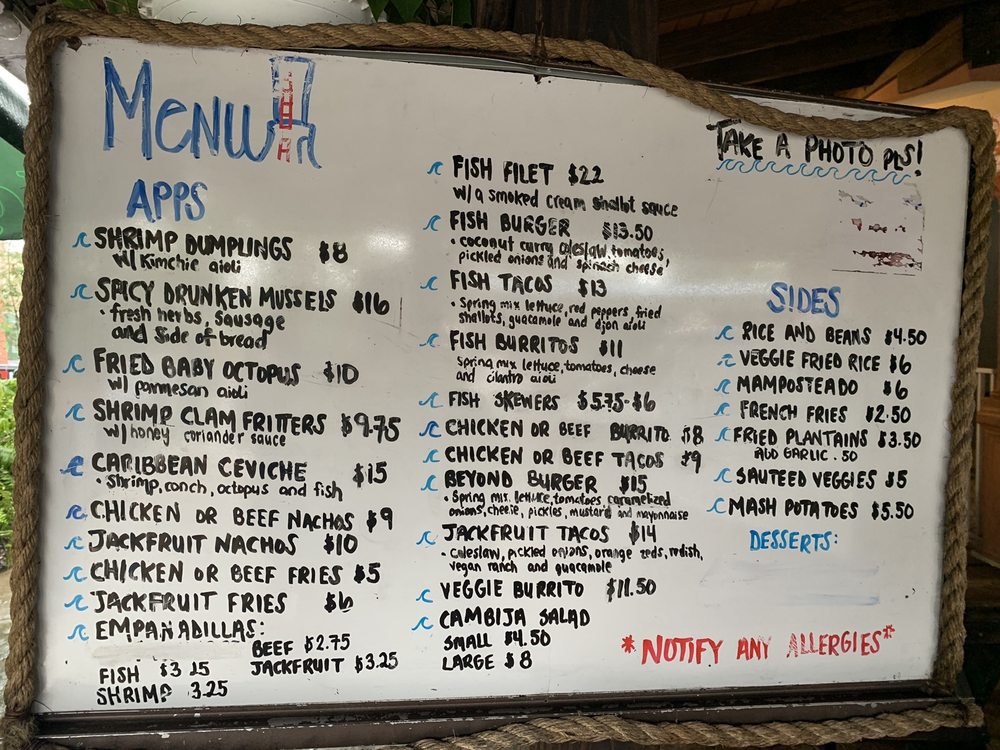 MENU
APPS
SHRIMP DUMPLINGS $8
w/ Kimchie aioli
SPICY DRUNKEN MUSSELS $16
• fresh herbs, sausage
and side of bread
FRIED BABY OCTOPUS $10
w/ parmesan aioli
SHRIMP CLAM FRITTERS $9.75
w/ honey coriander sauce
CARIBBEAN CEVICHE $15
• Shrimp, conch, octopus and fish
CHICKEN OR BEEF NACHOS $9
JACKFRUIT NACHOS $10
CHICKEN OR BEEF FRIES $5
JACKFRUIT FRIES $6
EMPAÑADILLAS:
BEEF $2.75
FISH $3.25 JACKFRUIT $3.25
SHRIMP 3.25
FISH FILET $22
w/ a smoked cream shallot sauce
FISH BURGER $13.50
• coconut curry coleslaw, tomatoes,
pickled onions and spinach cheese
FISH TACOS $13
• Spring mix lettuce, red peppers, fried
shallots, guacamole and djon aioli
FISH BURRITOS $11
Spring mix lettuce, tomatoes, cheese
and cilantro aioli
FISH SKEWERS $5.75-$6
CHICKEN OR BEEF BURRITO $8
CHICKEN OR BEEF TACOS $9
BEYOND BURGER $15
• Spring mix lettuce, tomatoes, caramelized
onions, cheese, pickles, mustard and mayonnaise
JACKFRUIT TACOS $14
• Coleslaw, pickled onions, orange zeds, redish,
vegan ranch and guacamole
VEGGIE BURRITO $11.50
CAMBIJA SALAD
SMALL $4.50
LARGE $8
TAKE A PHOTO PLS!
SIDES
RICE AND BEANS $4.50
VEGGIE FRIED RICE $6
MAMPOSTEADO $6
FRENCH FRIES $2.50
FRIED PLANTAINS $3.50
ADD GARLIC .50
SAUTEED VEGGIES $5
MASH POTATOES $5.50
DESSERTS:
*NOTIFY ANY ALLERGIES*